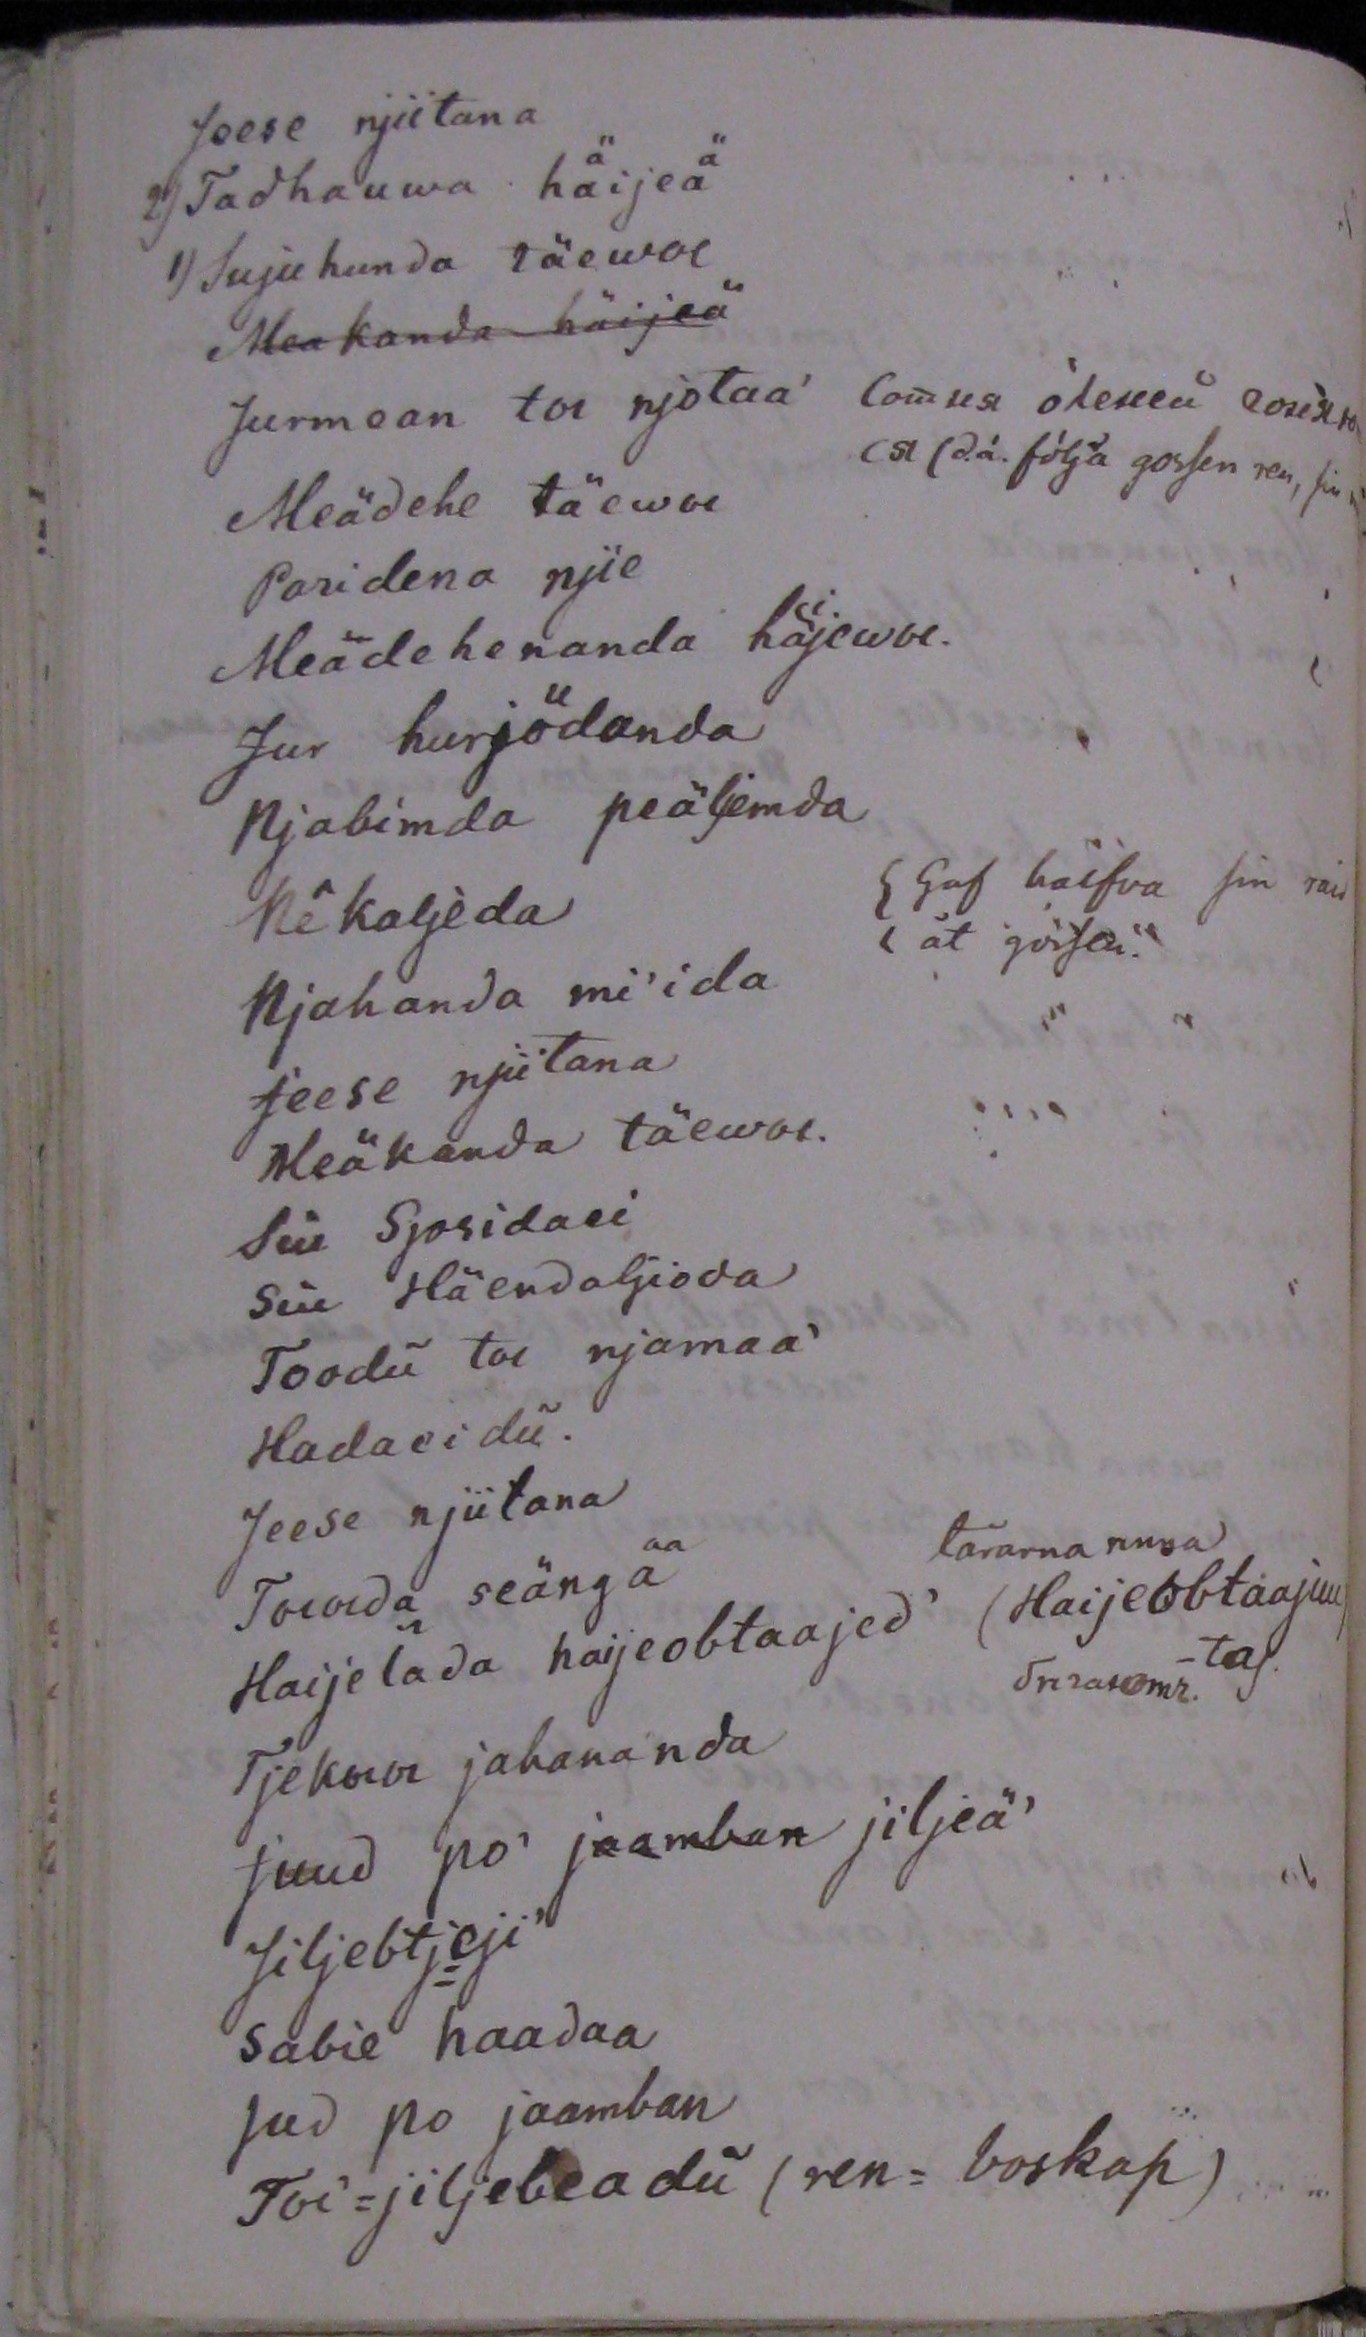 Jeese njiitana
2) Tadhauwa häijeä
1) Sujuhunda täewoe
Meakanda häijeä
Jurmean toe njotaa'
(d.ä. följa gossen ren, sin
Meädehe täewoe
Paridena njie
Meädehenanda häijewoe.
Jur hurjödanda
Njabimda peäljemda
Nêkaljeda
{ Gaf häifva sin raid
{ ät gossen.
Njahanda mi'ida
Jeese njiitana
Meäkanda täewoe.
Siu Sjosidaei
Siu Häendaljioda
Toodü toe njamaa'
Hadaeidü.
Jeese njiitana
Towda seängä aa
tärarna runsa
Haijeläda haijeobtaajed' (Haijeobtaajuu)
Tjekoe jahananda
Juud po' jaamban jiljeä'
Jiljebtjeji'
Sabie haadaa
Jud po jaamban
Toi=jiljebeadü (ren= boskap)